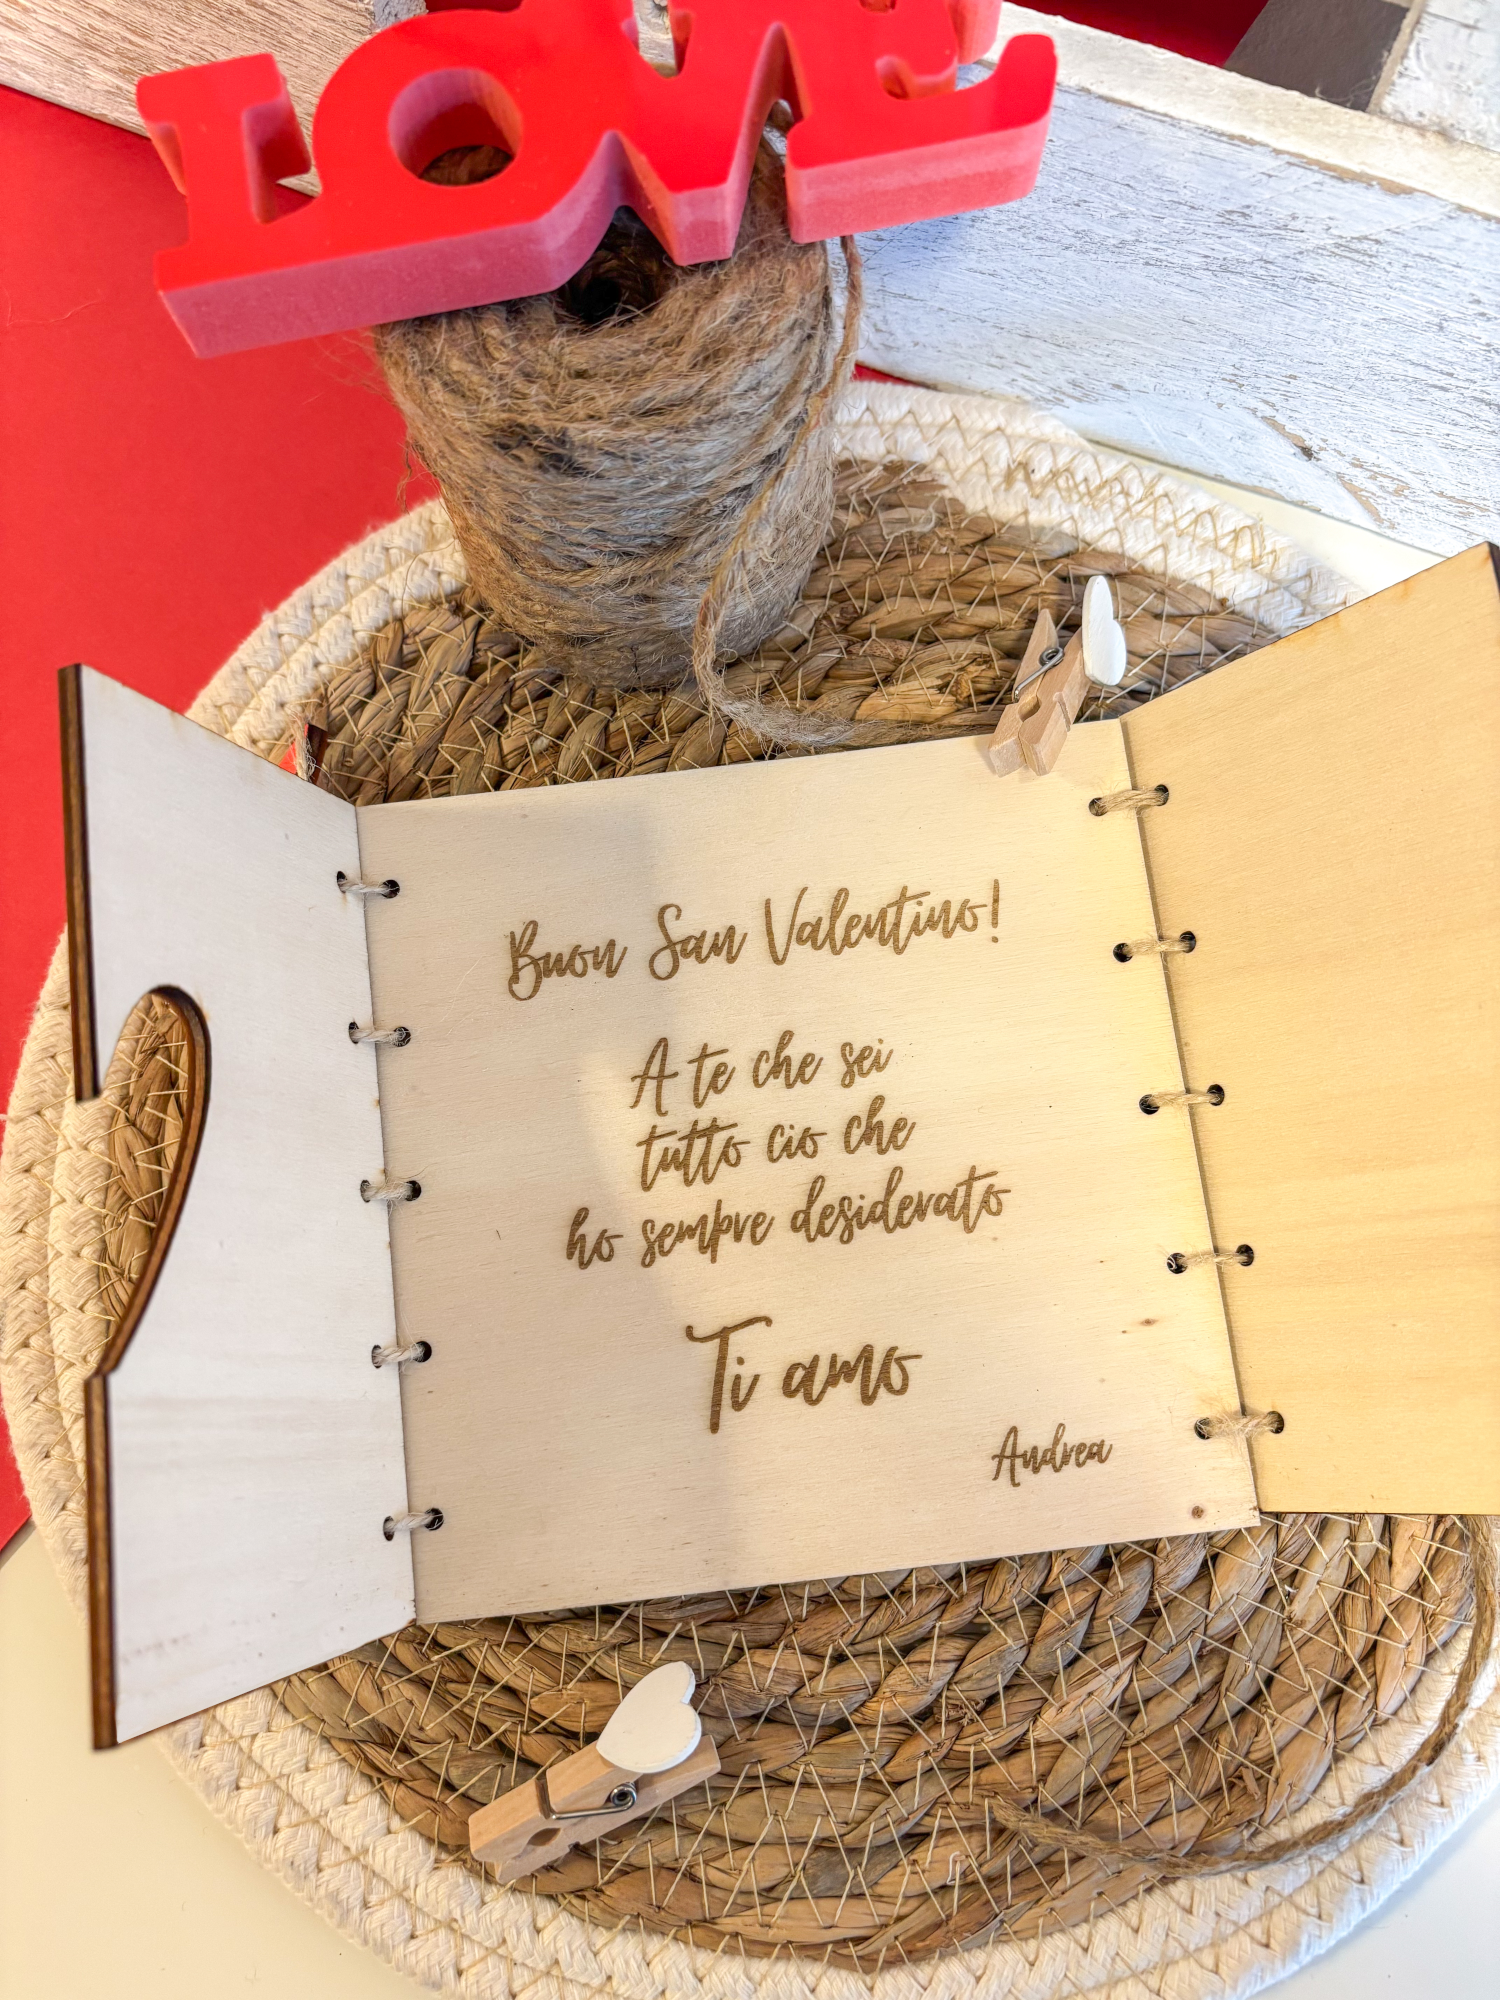 LOVE
Buon San Valentino!
A te che sei
tutto cio che
ho sempre desiderato
Ti amo
Andrea